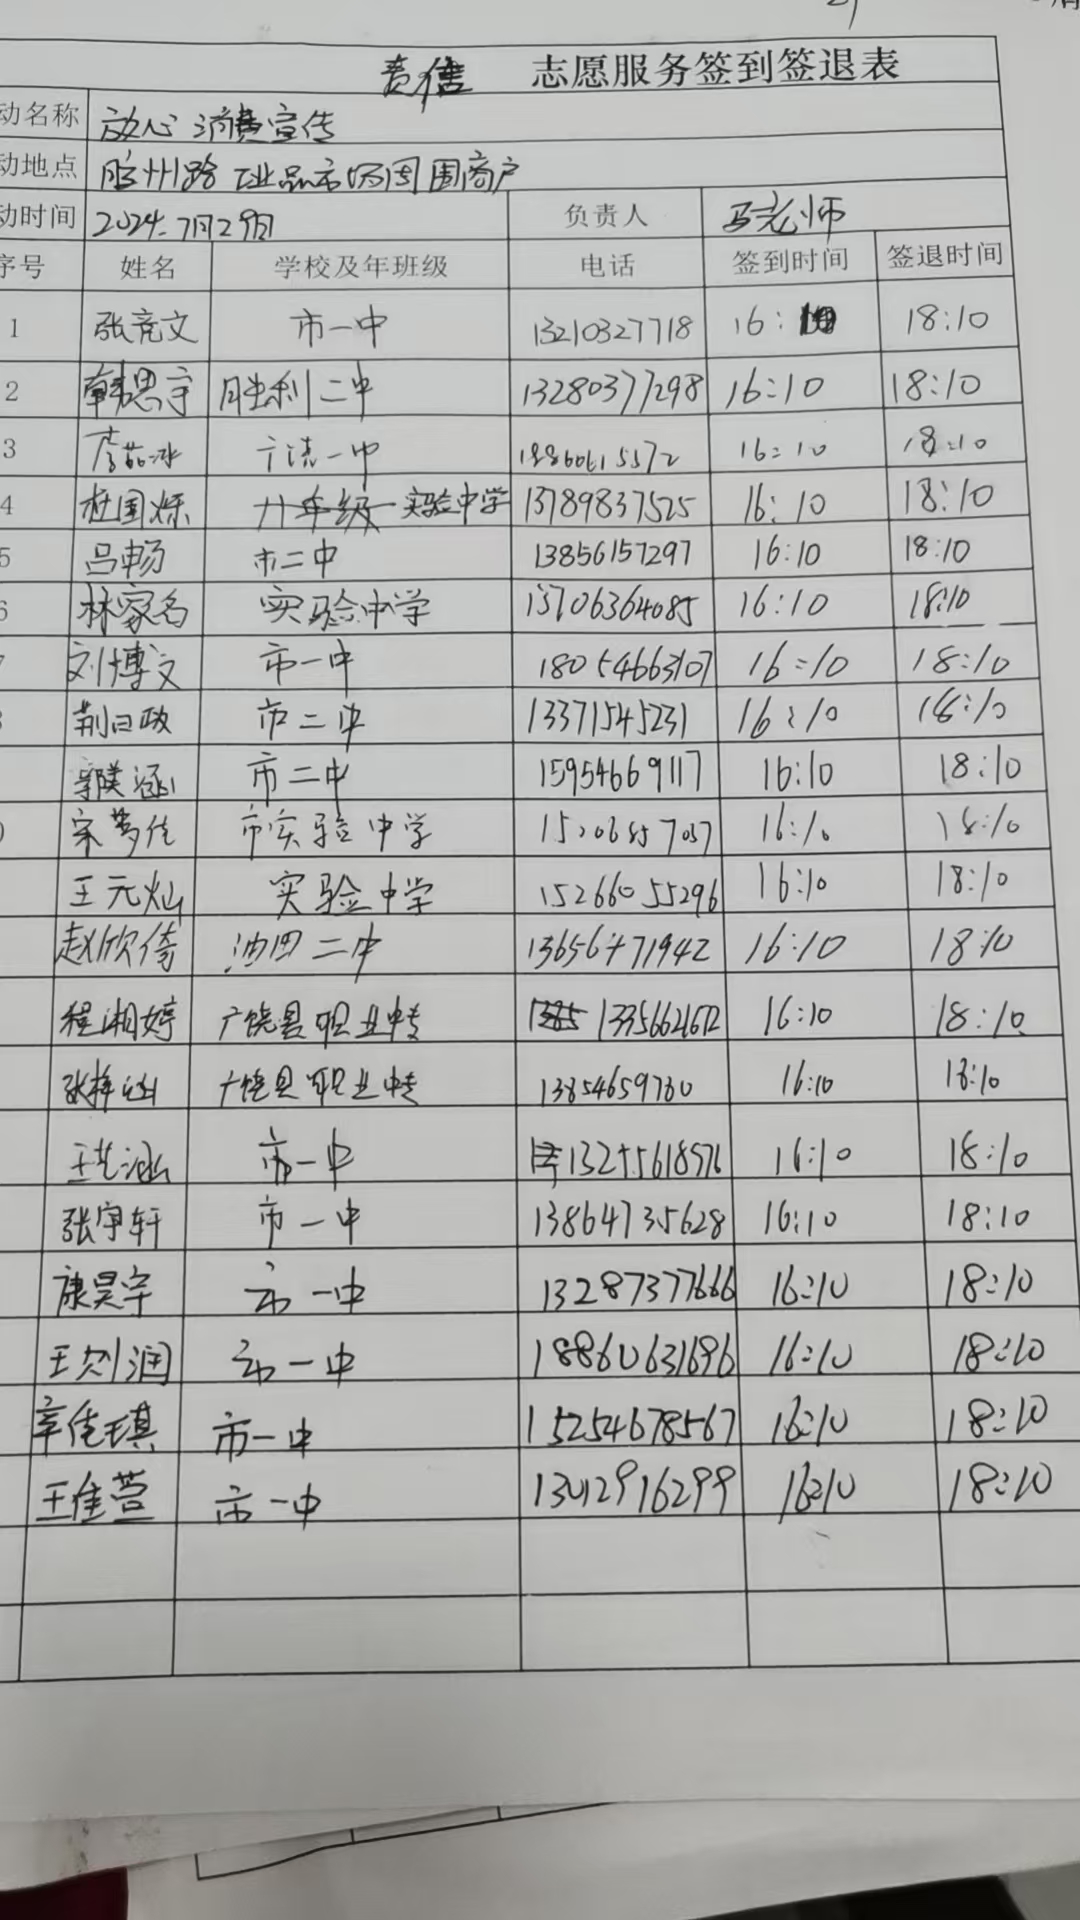 志愿服务签到签退表
动名称 放心消费宣传
动地点 胶州路工业品市场周围商户
动时间 2024.7月29日 负责人 马老师
序号 姓名 学校及年班级 电话 签到时间 签退时间
1 张竞文 市一中 13210327718 16:10 18:10
2 韩思宇 胜利二中 13280377298 16:10 18:10
3 李茹冰 广饶一中 16:10 18:10
4 杜国烁 实验中学 13789837525 16:10 18:10
5 吕畅 市二中 13856157297 16:10 18:10
6 林家名 实验中学 13706364085 16:10 18:10
刘博文 市一中 18054663107 16:10 18:10
荆曰政 市二中 13371545231 16:10 18:10
郭美涵 市二中 15954669117 16:10 18:10
宋梦佳 市实验中学 16:10 18:10
王元灿 实验中学 15266055296 16:10 18:10
赵欣倚 油田二中 13656471942 16:10 18:10
程湘婷 广饶县职业中专 16:10 18:10
张梓涵 广饶县职业中专 13854659780 16:10 18:10
王艺涵 市一中 13255618576 16:10 18:10
张宇轩 市一中 13864735628 16:10 18:10
康昊宇 市一中 13287377666 16:10 18:10
王刘润 市一中 18860631696 16:10 18:10
辛佳琪 市一中 15254678567 16:10 18:10
王佳萱 市一中 13012916299 16:10 18:10